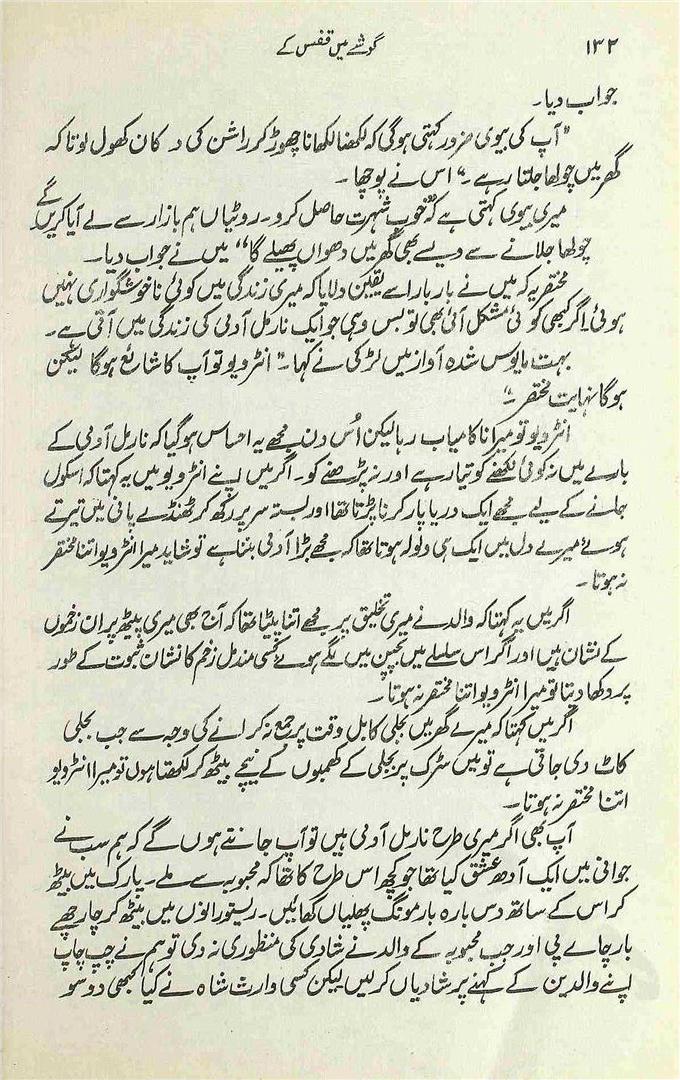 ۱۳۲
گوشے میں قفس کے
جواب دیا۔
"آپ کی بیوی ضرور کہتی ہوگی کہ لکھنا لکھانا چھوڑ کر راشن کی دکان کھول لو تا کہ
گھر میں چولھا جلتا رہے۔" اس نے پوچھا۔
میری بیوی کہتی ہے کہ "خوب شہرت حاصل کرو۔ روٹیاں ہم بازار سے لے آیا کریں گے
چولھا جلانے سے ویسے بھی گھر میں دھواں پھیلے گا" میں نے جواب دیا۔
مختصر یہ کہ میں نے بار بار اسے یقین دلایا کہ میری زندگی میں کوئی ناخوشگواری نہیں
ہوئی۔ اگر کبھی کوئی مشکل آئی بھی تو بس وہی جو ایک نارمل آدمی کی زندگی میں آتی ہے۔
بہت مایوس شدہ آواز میں لڑکی نے کہا۔ "انٹرویو تو آپ کا شایع ہوگا لیکن
ہوگا نہایت مختصر۔"
انٹرویو تو میرا ناکامیاب رہا لیکن اُس دن مجھے یہ احساس ہوگیا کہ نارمل آدمی کے
بارے میں نہ کوئی لکھنے کو تیار ہے اور نہ پڑھنے کو۔ اگر میں اپنے انٹرویو میں یہ کہتا کہ اسکول
جانے کے لیے مجھے ایک دریا پار کرنا پڑتا تھا اور بستہ سر پر رکھ کر ٹھنڈے پانی میں تیرتے
ہوئے میرے دل میں ایک ہی ولولہ ہوتا تھا کہ مجھے بڑا آدمی بننا ہے تو شاید میرا انٹرویو اتنا مختصر
نہ ہوتا۔
اگر میں یہ کہتا کہ والد نے میری تخلیق پر مجھے اتنا پیٹا تھا کہ آج بھی میری پیٹھ پر ان زخموں
کے نشان ہیں اور اگر اس سلسلے میں بچپن میں لگے ہوئے کسی مندمل زخم کا نشان ثبوت کے طور
پر دکھا دیتا تو میرا انٹرویو اتنا مختصر نہ ہوتا۔
اگر میں کہتا کہ میرے گھر میں بجلی کا بل وقت پر جمع نہ کرانے کی وجہ سے جب بجلی
کاٹ دی جاتی ہے تو میں سڑک پر بجلی کے کھمبوں کے نیچے بیٹھ کر لکھتا ہوں تو میرا انٹرویو
اتنا مختصر نہ ہوتا۔
آپ بھی اگر میری طرح نارمل آدمی ہیں تو آپ جانتے ہوں گے کہ ہم سب نے
جوانی میں ایک آدھ عشق کیا تھا جو کچھ اس طرح کا تھا کہ محبوبہ سے ملے۔ پارک میں بیٹھ
کر اس کے ساتھ دس بارہ بار مونگ پھلیاں کھائیں۔ ریستورانوں میں بیٹھ کر چار چھے
بار چاے پی اور جب محبوبہ کے والد نے شادی کی منظوری نہ دی تو ہم نے چپ چاپ
اپنے والدین کے کہنے پر شادیاں کرلیں لیکن کسی وارث شاہ نے کیا کبھی دو سو